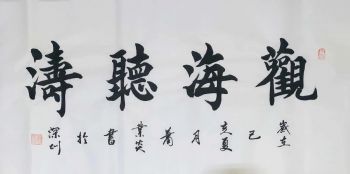 觀海聽濤
歲在己亥夏月業炎書於深圳